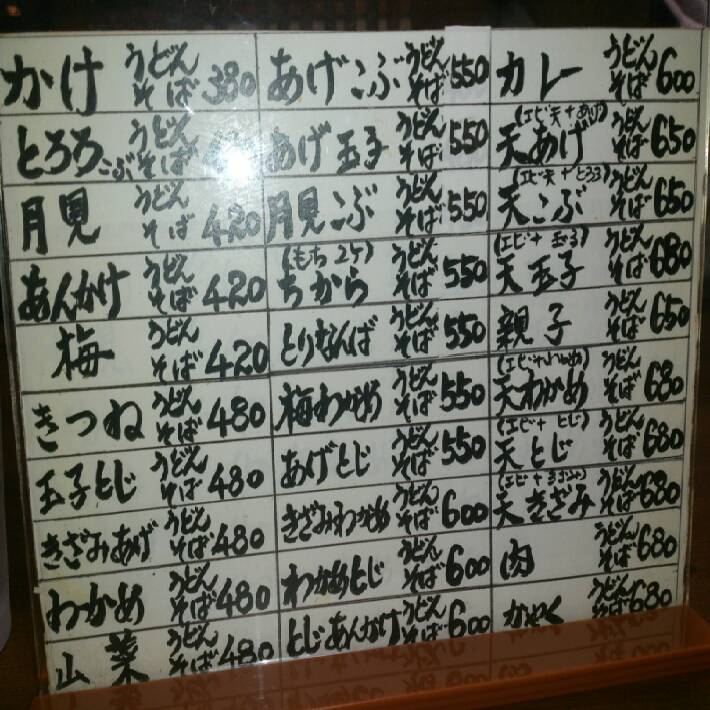 かけ うどん そば 380
とろろこぶ うどん そば
月見 うどん そば 420
あんかけ うどん そば 420
梅 うどん そば 420
きつね うどん そば 480
玉子とじ うどん そば 480
きざみあげ うどん そば 480
わかめ うどん そば 480
山菜 うどん そば 480
あげこぶ うどん そば 550
あげ玉子 うどん そば 550
月見こぶ うどん そば 550
(もち2ケ)
ちから うどん そば 550
とりなんば うどん そば 550
梅わかめ うどん そば 550
あげとじ うどん そば 550
きざみわかめ うどん そば 600
わかめとじ うどん そば 600
とじあんかけ うどん そば 600
カレー うどん そば 600
(エビ天+あげ)
天あげ うどん そば 650
(エビ天+とろろ)
天こぶ うどん そば 650
(エビ+玉子)
天玉子 うどん そば 680
親子 うどん そば 650
(エビ+わかめ)
天わかめ うどん そば 680
(エビ+とじ)
天とじ うどん そば 680
(エビ+きざみ)
天きざみ うどん そば 680
肉 うどん そば 680
かやく うどん そば 680